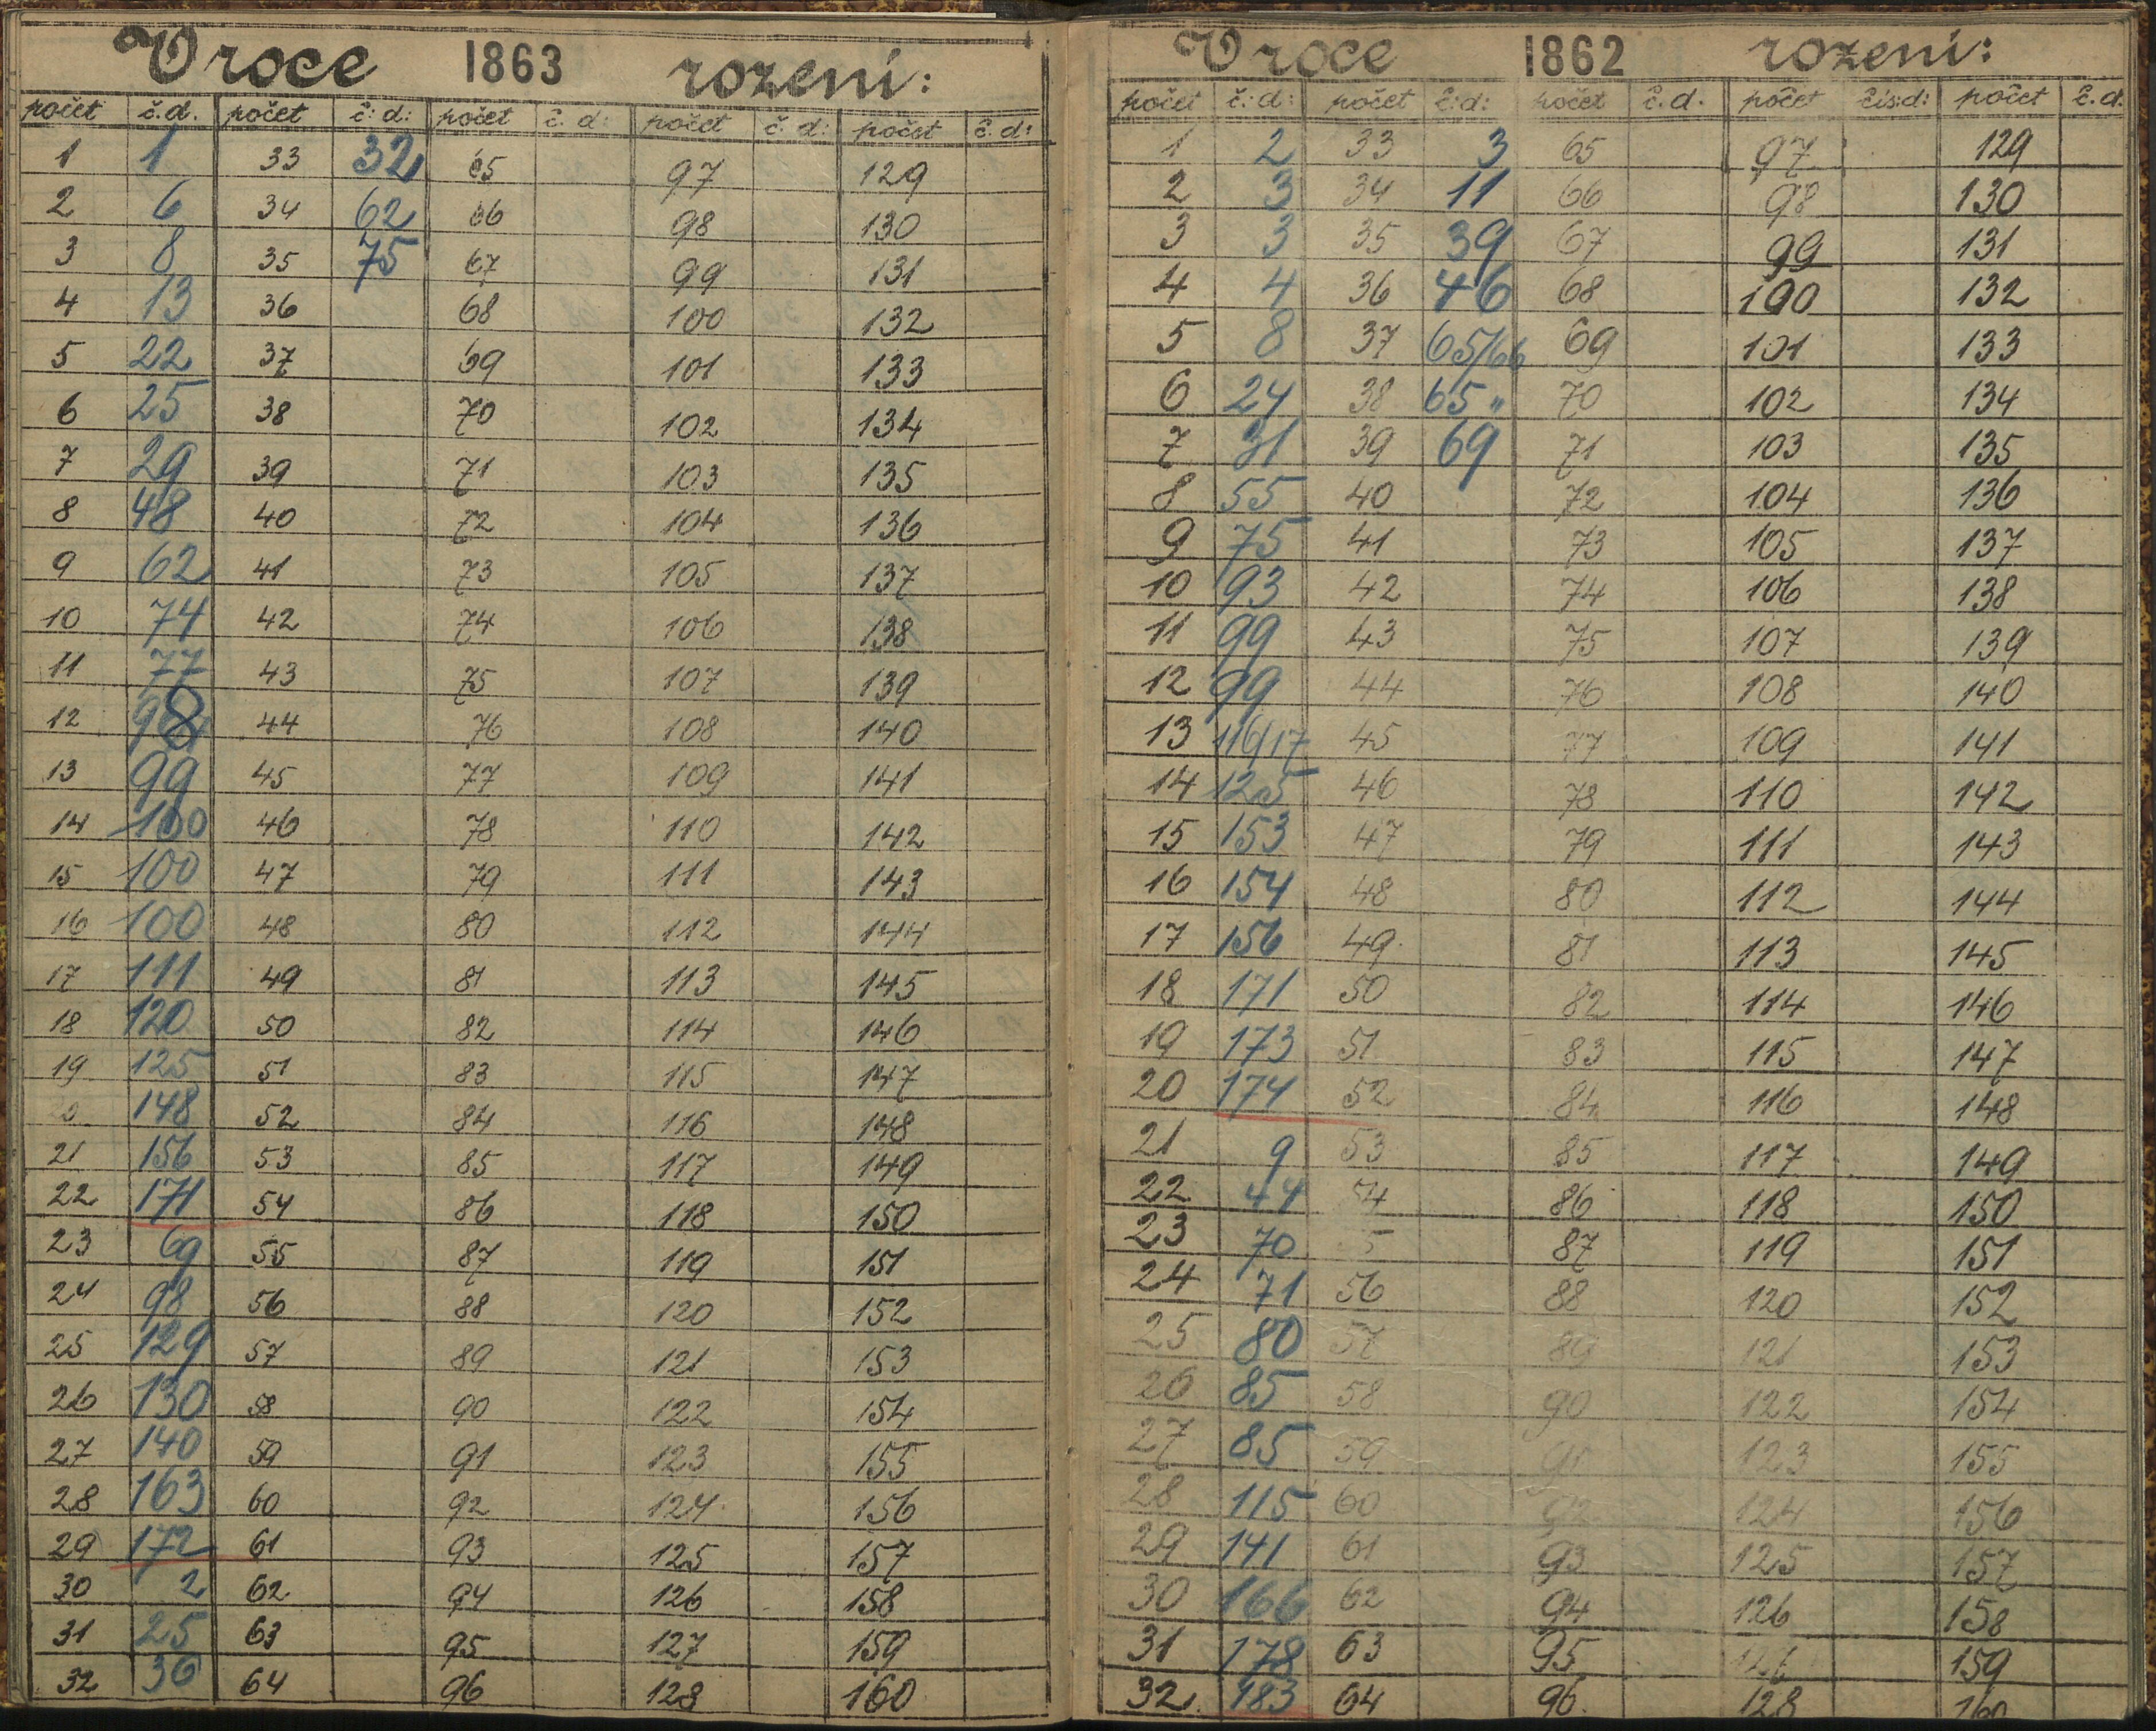 V roce 1863 rození:
počet č.d. počet č:d: počet č.d: počet č.d: počet č.d:
1 1 33 32 65 97 129
2 6 34 62 66 98 130
3 8 35 75 67 99 131
4 13 36 68 100 132
5 22 37 69 101 133
6 25 38 70 102 134
7 29 39 71 103 135
8 48 40 72 104 136
9 62 41 73 105 137
10 74 42 74 106 138
11 77 43 75 107 139
12 98 44 76 108 140
13 99 45 77 109 141
14 100 46 78 110 142
15 100 47 79 111 143
16 100 48 80 112 144
17 111 49 81 113 145
18 120 50 82 114 146
19 125 51 83 115 147
148 52 84 116 148
21 156 53 85 117 149
22 171 54 86 118 150
23 69 55 87 119 151
24 98 56 88 120 152
25 129 57 89 121 153
26 130 58 90 122 154
27 140 59 91 123 155
28 163 60 92 124 156
29 172 61 93 125 157
30 2 62 94 126 158
31 25 63 95 127 159
32 36 64 96 128 160
V roce 1862 rození:
počet č.:d: počet č:d: počet č.d. počet čís:d: počet č.d.
1 2 33 3 65 97 129
2 3 34 11 66 98 130
3 3 35 39 67 99 131
4 4 36 46 68 100 132
5 8 37 65/66 69 101 133
6 24 38 65 " 70 102 134
7 31 39 69 71 103 135
8 55 40 72 104 136
9 75 41 73 105 137
10 93 42 74 106 138
11 99 43 75 107 139
12 99 44 76 108 140
13 116/17 45 77 109 141
14 125 46 78 110 142
15 153 47 79 111 143
16 154 48 80 112 144
17 156 49 81 113 145
18 171 50 82 114 146
19 173 51 83 115 147
20 174 52 84 116 148
21 9 53 85 117 149
22 44 54 86 118 150
23 70 5 87 119 151
24 71 56 88 120 152
25 80 57 89 121 153
26 85 58 90 122 154
27 85 59 91 123 155
28 115 60 92 124 156
29 141 61 93 125 157
30 166 62 94 126 158
31 178 63 95 126 159
32 183 64 96 128 160